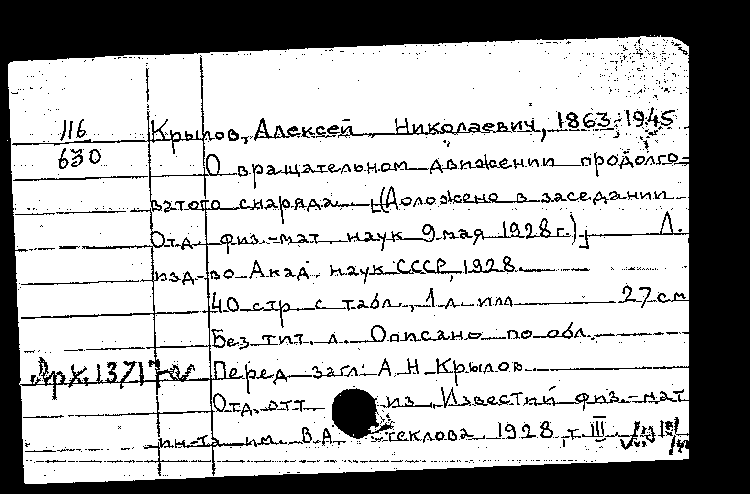 116
630
Крылов, Алексей Николаевич, 1863-1945
О вращательном движении продолго-
ватого снаряда. [(Доложено в заседании
Отд. физ.-мат. наук 9 мая 1928 г.)] Л.
изд-во Акад. наук СССР, 1928.
40 стр. с табл., 1 л. илл 27 см
Без тит. л. Описано по обл.
Арх. 13717
Перед загл: А Н Крылов
Отд. отт из "Известий физ.-мат
ин-та им. В.А. Стеклова 1928, т. III